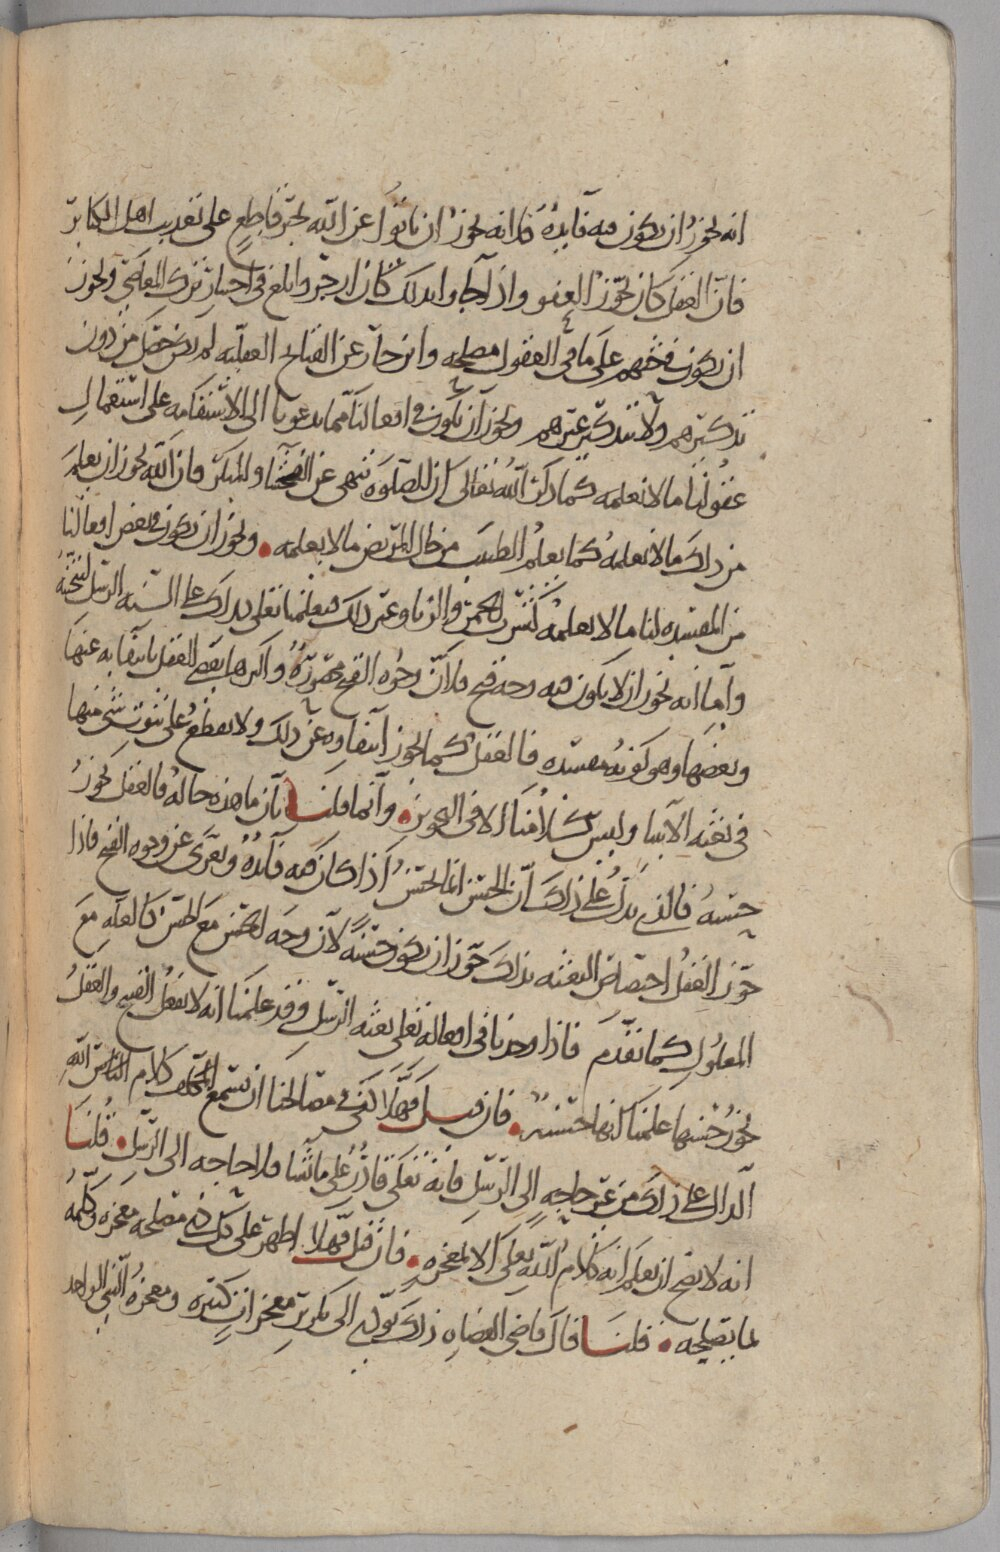 انه يجوز ان يكون فيه فائدة فلانه يجوز ان ياتوا عن الله بخبر قاطع على تعذيب اهل الكبائر
فان العقل كان يجوز العفو واذا جاوا بذلك كان ازجر وابلغ في اختيار ترك المعاصي ويجوز
ان يكون في حثهم على ما في العقول مصلحه وانزجار عن القبائح العقليه لم يكن يحصل من دون
تذكيرهم ولا بتذكير غيرهم ويجوز ان يكون في افعالنا مما يدعونا الى الاستقامه على استعمال
عقولنا ما لا نعلمه كما ذكر الله تعالى ان الصلوه تنهى عن الفحشا والمنكر فان الله يجوز ان يعلم
من ذلك ما لا نعلمه كما يعلم الطبيب من حال المريض ما لا يعلمه • ويجوز ان يكون في بعض افعالنا
من المفسده لنا ما لا نعلمه كشرب الخمر والزنا وغير ذلك فيعلمنا تعالى بذلك على السنه الرسل
واما انه يجوز ان لا يكون فيه وجه قبح فلان وجوه القبح محصورة واكثرها يقضي العقل بانتفائه عنها
وبعضها وهو كونه مفسده فالعقل كما يجوز انتفاوه عن ذلك ولا يقطع على ثبوت شي منها
في بعثه الانبيا وليس كلامنا الا في التجويز • وانما قلنا بان ما هذه حاله فالعقل يجوز
حسنه فالذي يدل على ذلك ان الحسن انما يحسن اذا كان فيه فائدة وتعرى عن وجوه القبح فاذا
جوز العقل اختصاص البعثه بذلك جوز ان يكون حسنة لان وجه الحسن مع الحسن كالعله مع
المعلول كما تقدم فاذا وجدنا في افعاله تعالى بعثه الرسل وقد علمنا انه لا يفعل القبيح والعقل
يجوز حسنها علمنا انها حسنة • فان قيل فهلا كفى في مصالحنا ان يسمع المكلف كلام الله
الدال على ذلك من غير حاجه الى الرسل فانه تعالى قادر على ما شا فلا حاجه الى الرسل • قلنا
انه لا يصح ان يعلم انه كلام الله تعالى الا بمعجزه • فان قيل فهلا اظهر على كل ذي مصلحه معجزه وكلمه
لما يصلحه • قلنا قال قاضي القضاه ذلك يودي الى تكرير معجزات كثيره ومعجزة النبي الواحد